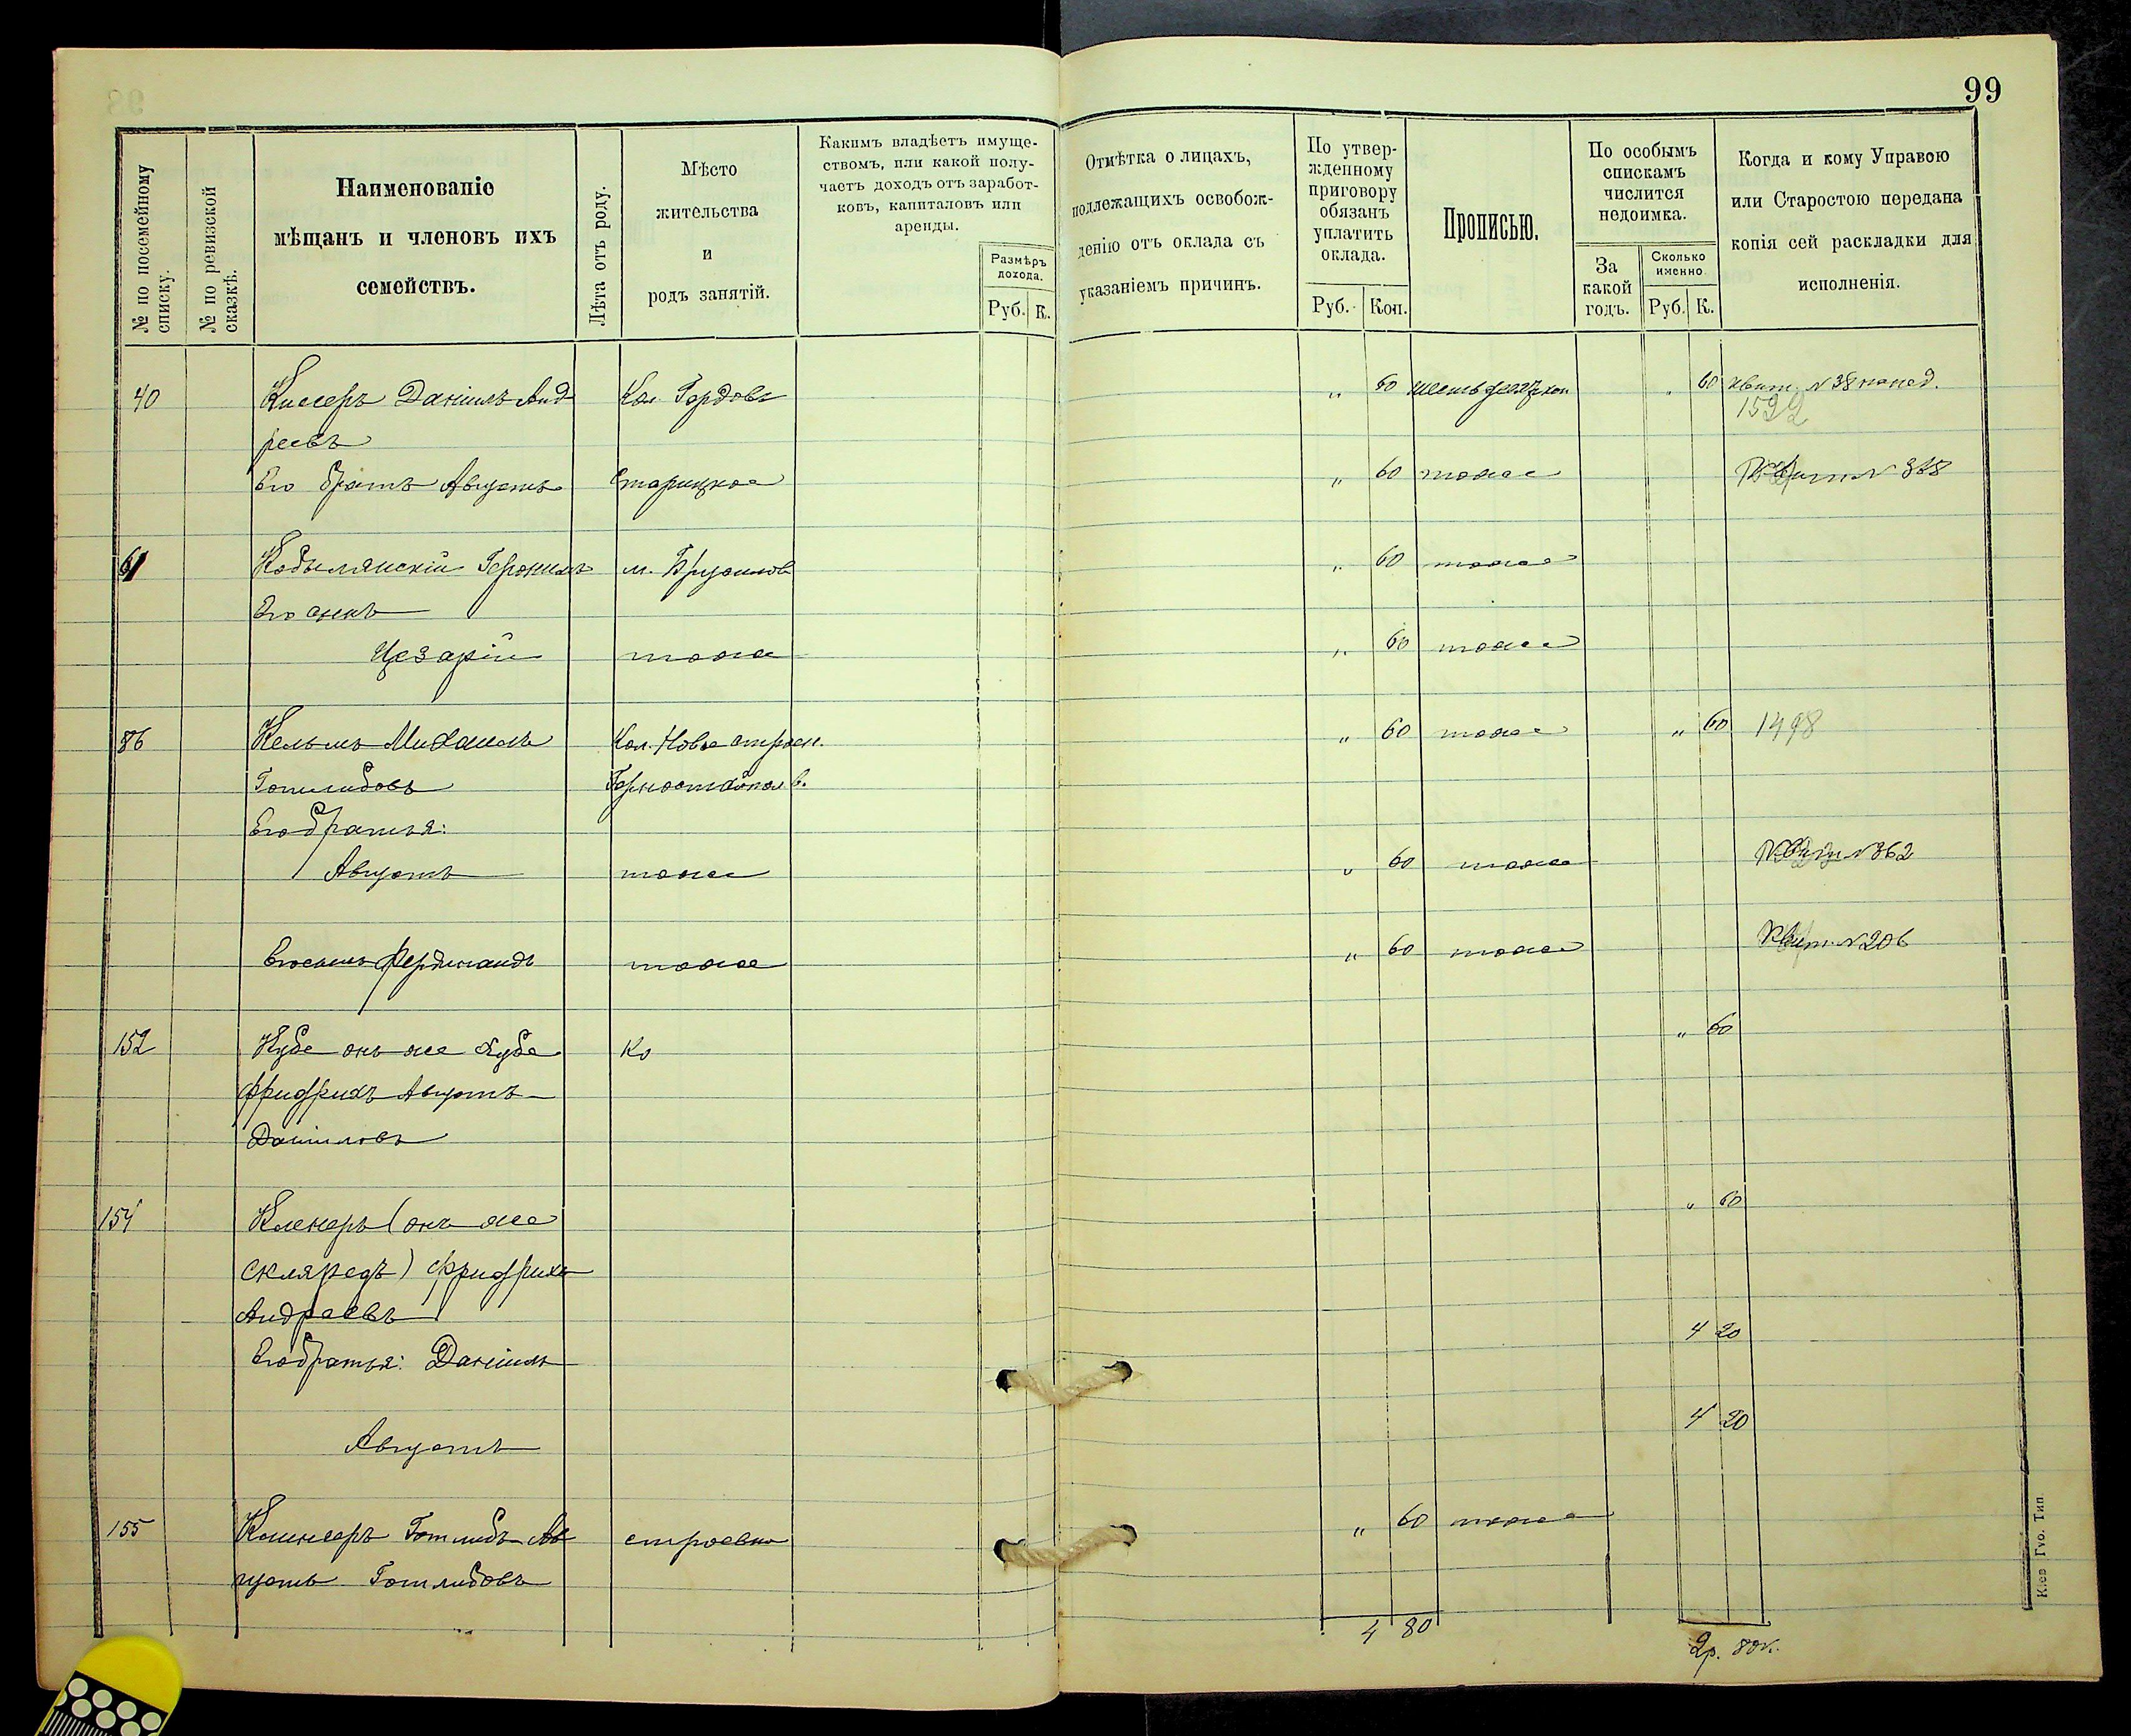 99
№ по посемейному списку.
№ по ревизской сказкѣ.
Наименованіе
мѣщанъ и членовъ ихъ
семействъ.
Лѣта отъ роду.
Мѣсто
жительства
и
родъ занятій.
Какимъ владѣетъ имуще-
ствомъ, или какой полу-
чаетъ доходъ отъ заработ-
ковъ, капиталовъ или
аренды.
Размѣръ
дохода.
Руб. К.
Отмѣтка о лицахъ,
подлежащихъ освобож-
денію отъ оклада съ
указаніемъ причинъ.
По утвер-
жденному
приговору
обязанъ
уплатить
оклада.
Руб. Коп.
Прописью.
По особымъ
спискамъ
числится
недоимка.
За
какой
годъ.
Сколько
именно
Руб. К.
Когда и кому Управою
или Старостою передана
копія сей раскладки для
исполненія.
40 Даніилъ Анд Кол. „ 60 „ 60 квит. N 38
реевъ 1522
Его братъ Августъ „ 60 тоже Квит N
61 м. Брусиловъ „ 60 тоже
Его сынъ
Цезарій тоже „ 60 тоже
86 Кельмъ Михаилъ Кол. Новое строен. „ 60 тоже „ 60 1498
Готлибовъ Горностайпол в.
Его братья:
Августъ тоже „ 60 тоже Квит N 362
Его сынъ Фердинандъ тоже „ 60 тоже Квит. N 206
152 Кубе онъ же Ко „ 60
Фридрихъ Августъ
Даниловъ
154 (онъ же „ 60
Фридрихъ
Андреевъ
4 20
Его братья: Даніилъ
Августъ 4 20
155 Готлибъ Ав „ 60 тоже
густъ Готлибовъ
4 80
2р. 80к.
Кіев Губ. Тип.